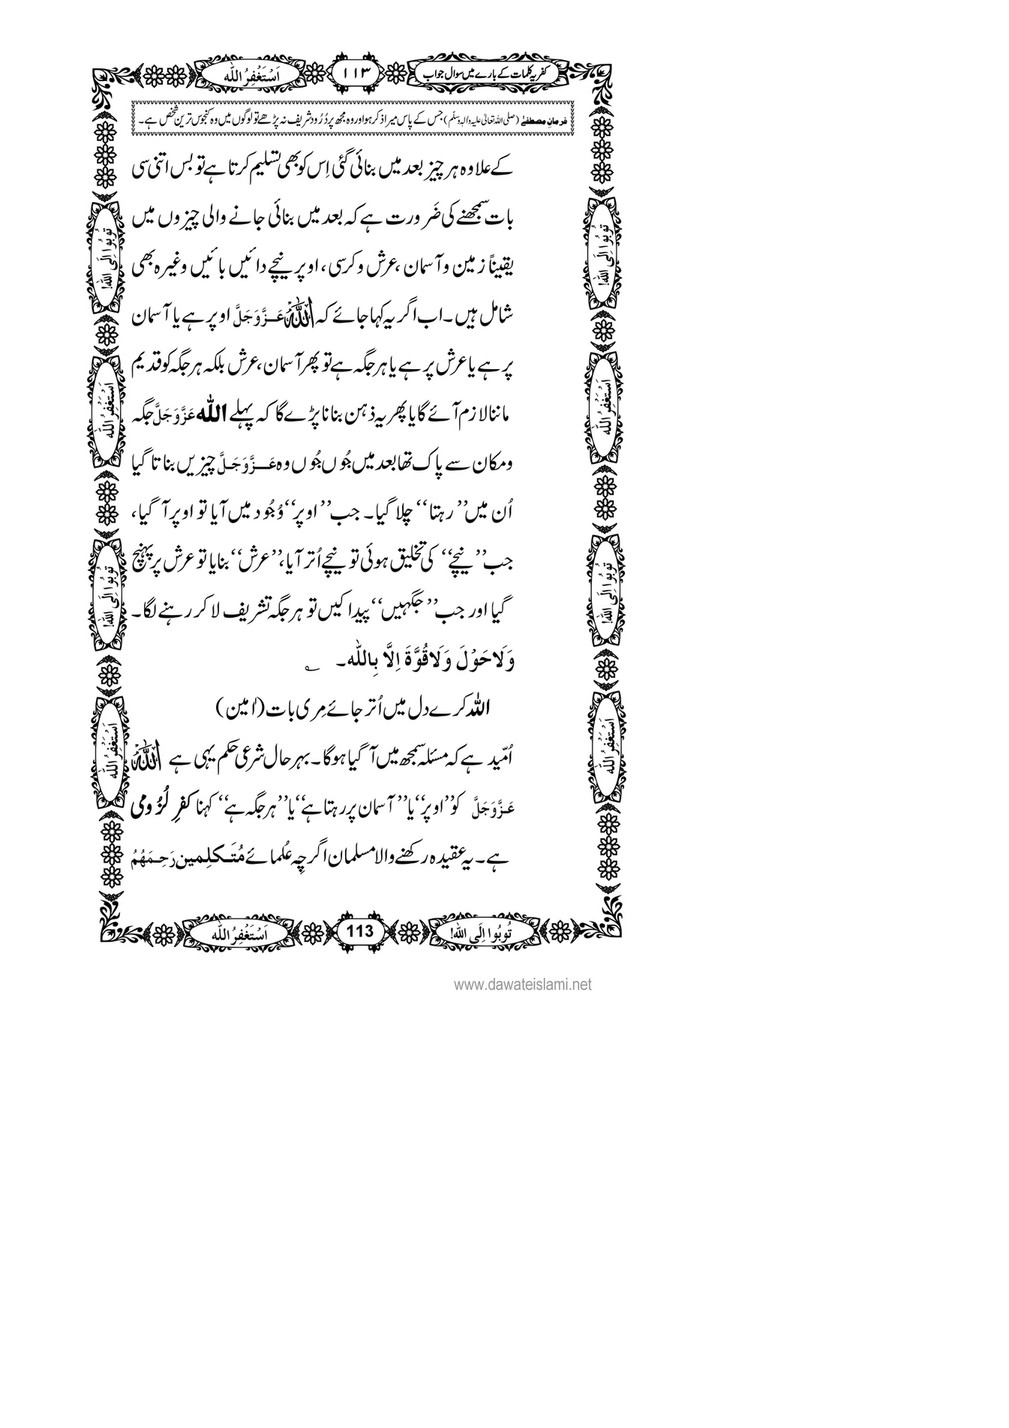 کفریہ کلمات کے بارے میں سوال جواب ۱۱۳ اَسْتَغْفِرُ اللہ
فرمانِ مصطفٰے (صلی اللہ تعالیٰ علیہ واٰلہٖ وسلّم) جس کے پاس میرا ذکر ہوا اور وہ مجھ پر دُرُود شریف نہ پڑھے تو لوگوں میں وہ کنجوس ترین شخص ہے۔
کے علاوہ ہر چیز بعد میں بنائی گئی اِس کو بھی تسلیم کرتا ہے تو بس اتنی سی
بات سمجھنے کی ضَرورت ہے کہ بعد میں بنائی جانے والی چیزوں میں
یقیناً زمین و آسمان ،عرش و کرسی ، اوپر نیچے دائیں بائیں وغیرہ بھی
شامل ہیں۔ اب اگر یہ کہا جائے کہ اللہ عَزَّوَجَلَّ اوپر ہے یا آسمان
پر ہے یا عرش پر ہے یا ہر جگہ ہے تو پھر آسمان ،عرش بلکہ ہر جگہ کو قدیم
ماننا لازم آئے گا یا پھر یہ ذہن بنانا پڑے گا کہ پہلے اللہ عَزَّوَجَلَّ جگہ
ومکان سے پاک تھا بعد میں جُوں جُوں وہ عَزَّوَجَلَّ چیزیں بناتا گیا
اُن میں ’’رہتا‘‘ چلا گیا۔ جب ’’اوپر‘‘ وُجُود میں آیا تو اوپر آ گیا،
جب ’’نیچے‘‘ کی تخلیق ہوئی تو نیچے اُتر آیا، ’’عرش‘‘ بنایا تو عرش پر پہنچ
گیا اور جب ’’جگہیں‘‘ پیدا کیں تو ہر جگہ تشریف لا کر رہنے لگا۔
وَلَاحَوْلَ وَلَاقُوَّۃَ اِلَّا بِاللہ۔ ؎
اللہ کرے دل میں اُتر جائے مِری بات (اٰمین)
اُمّید ہے کہ مسئلہ سمجھ میں آ گیا ہوگا۔ بہر حال شرعی حکم یہی ہے اللہ
عَزَّوَجَلَّ کو ’’اوپر‘‘ یا ’’آسمان پر رہتا ہے‘‘ یا ’’ہر جگہ ہے‘‘ کہنا کفرِ لُزُومی
ہے۔ یہ عقیدہ رکھنے والا مسلمان اگرچِہ عُلمائے مُتَکلِمین رَحِمَہُمُ
تُوبُوا اِلَی اللہ!
اَسْتَغْفِرُ اللہ
تُوبُوا اِلَی اللہ!
اَسْتَغْفِرُ اللہ
تُوبُوا اِلَی اللہ!
اَسْتَغْفِرُ اللہ
تُوبُوا اِلَی اللہ!
اَسْتَغْفِرُ اللہ
تُوبُوا اِلَی اللہ! 113 اَسْتَغْفِرُ اللہ
www.dawateislami.net